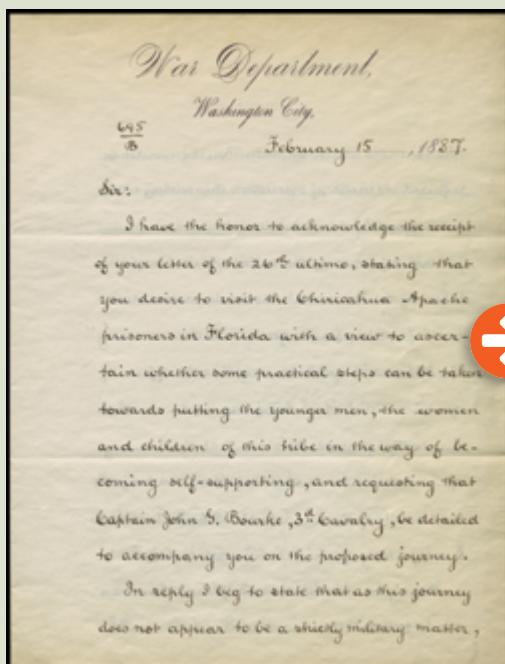 War Department,
Washington City,
695
B
February 15, 1887.
Sir:
I have the honor to acknowledge the receipt
of your letter of the 26th ultimo, stating that
you desire to visit the Chiricahua Apache
prisoners in Florida with a view to ascer-
tain whether some practical steps can be taken
towards putting the younger men, the women
and children of this tribe in the way of be-
coming self-supporting, and requesting that
Captain John G. Bourke, 3rd Cavalry, be detailed
to accompany you on the proposed journey.
In reply I beg to state that as this journey
does not appear to be a strictly military matter,